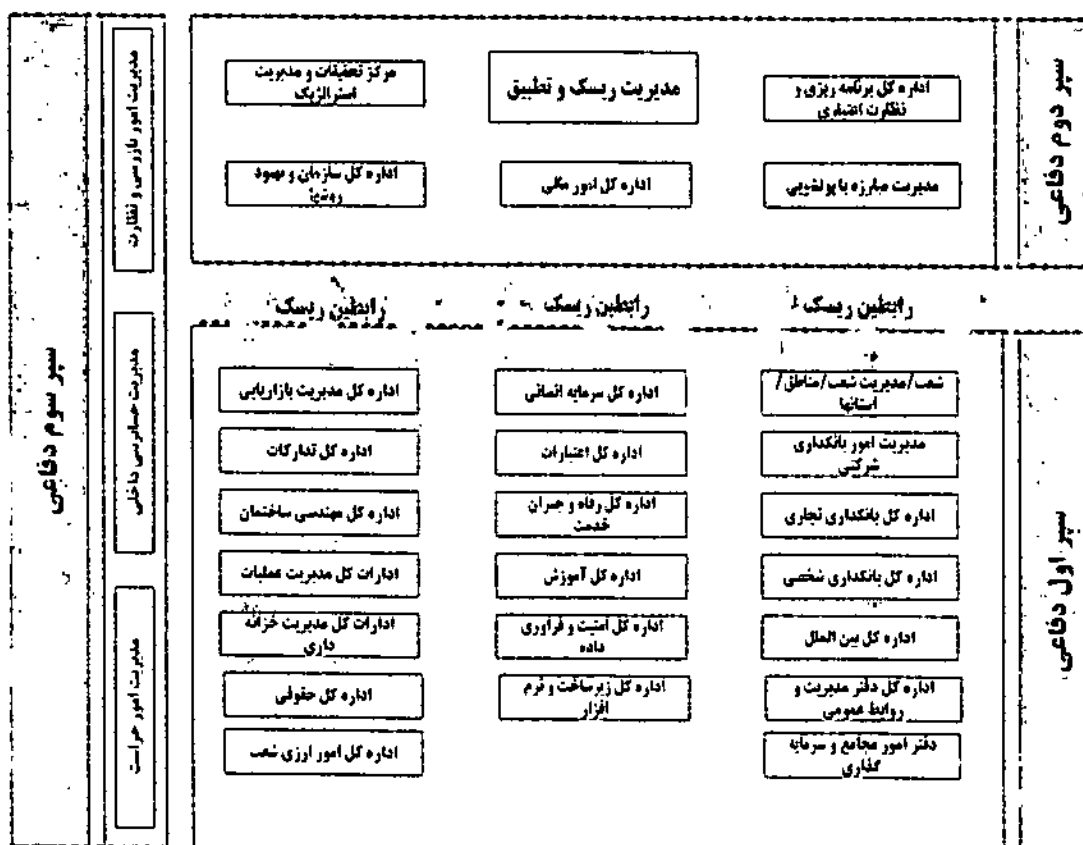 سپر دوم دفاعی
اداره کل برنامه ریزی و
نظارت اعتباری
مدیریت ریسک و تطبیق
مرکز تحقیقات و مدیریت
استراتژیک
مدیریت مبارزه با پولشویی
اداره کل امور مالی
اداره کل سازمان و بهبود
روشها
رابطین ریسک
رابطین ریسک
رابطین ریسک
سپر اول دفاعی
شعب/مدیریت شعب/مناطق/
استانها
مدیریت امور بانکداری
شرکتی
اداره کل بانکداری تجاری
اداره کل بانکداری شخصی
اداره کل بین الملل
اداره کل دفتر مدیریت و
روابط عمومی
دفتر امور مجامع و سرمایه
گذاری
اداره کل سرمایه انسانی
اداره کل اعتبارات
اداره کل رفاه و جبران
خدمت
اداره کل آموزش
اداره کل امنیت و فرآوری
داده
اداره کل زیرساخت و نرم
افزار
اداره کل مدیریت بازاریابی
اداره کل تدارکات
اداره کل مهندسی ساختمان
ادارات کل مدیریت عملیات
ادارات کل مدیریت خزانه
داری
اداره کل حقوقی
اداره کل امور ارزی شعب
مدیریت امور بازرسی و نظارت
مدیریت حسابرسی داخلی
مدیریت امور حراست
سپر سوم دفاعی